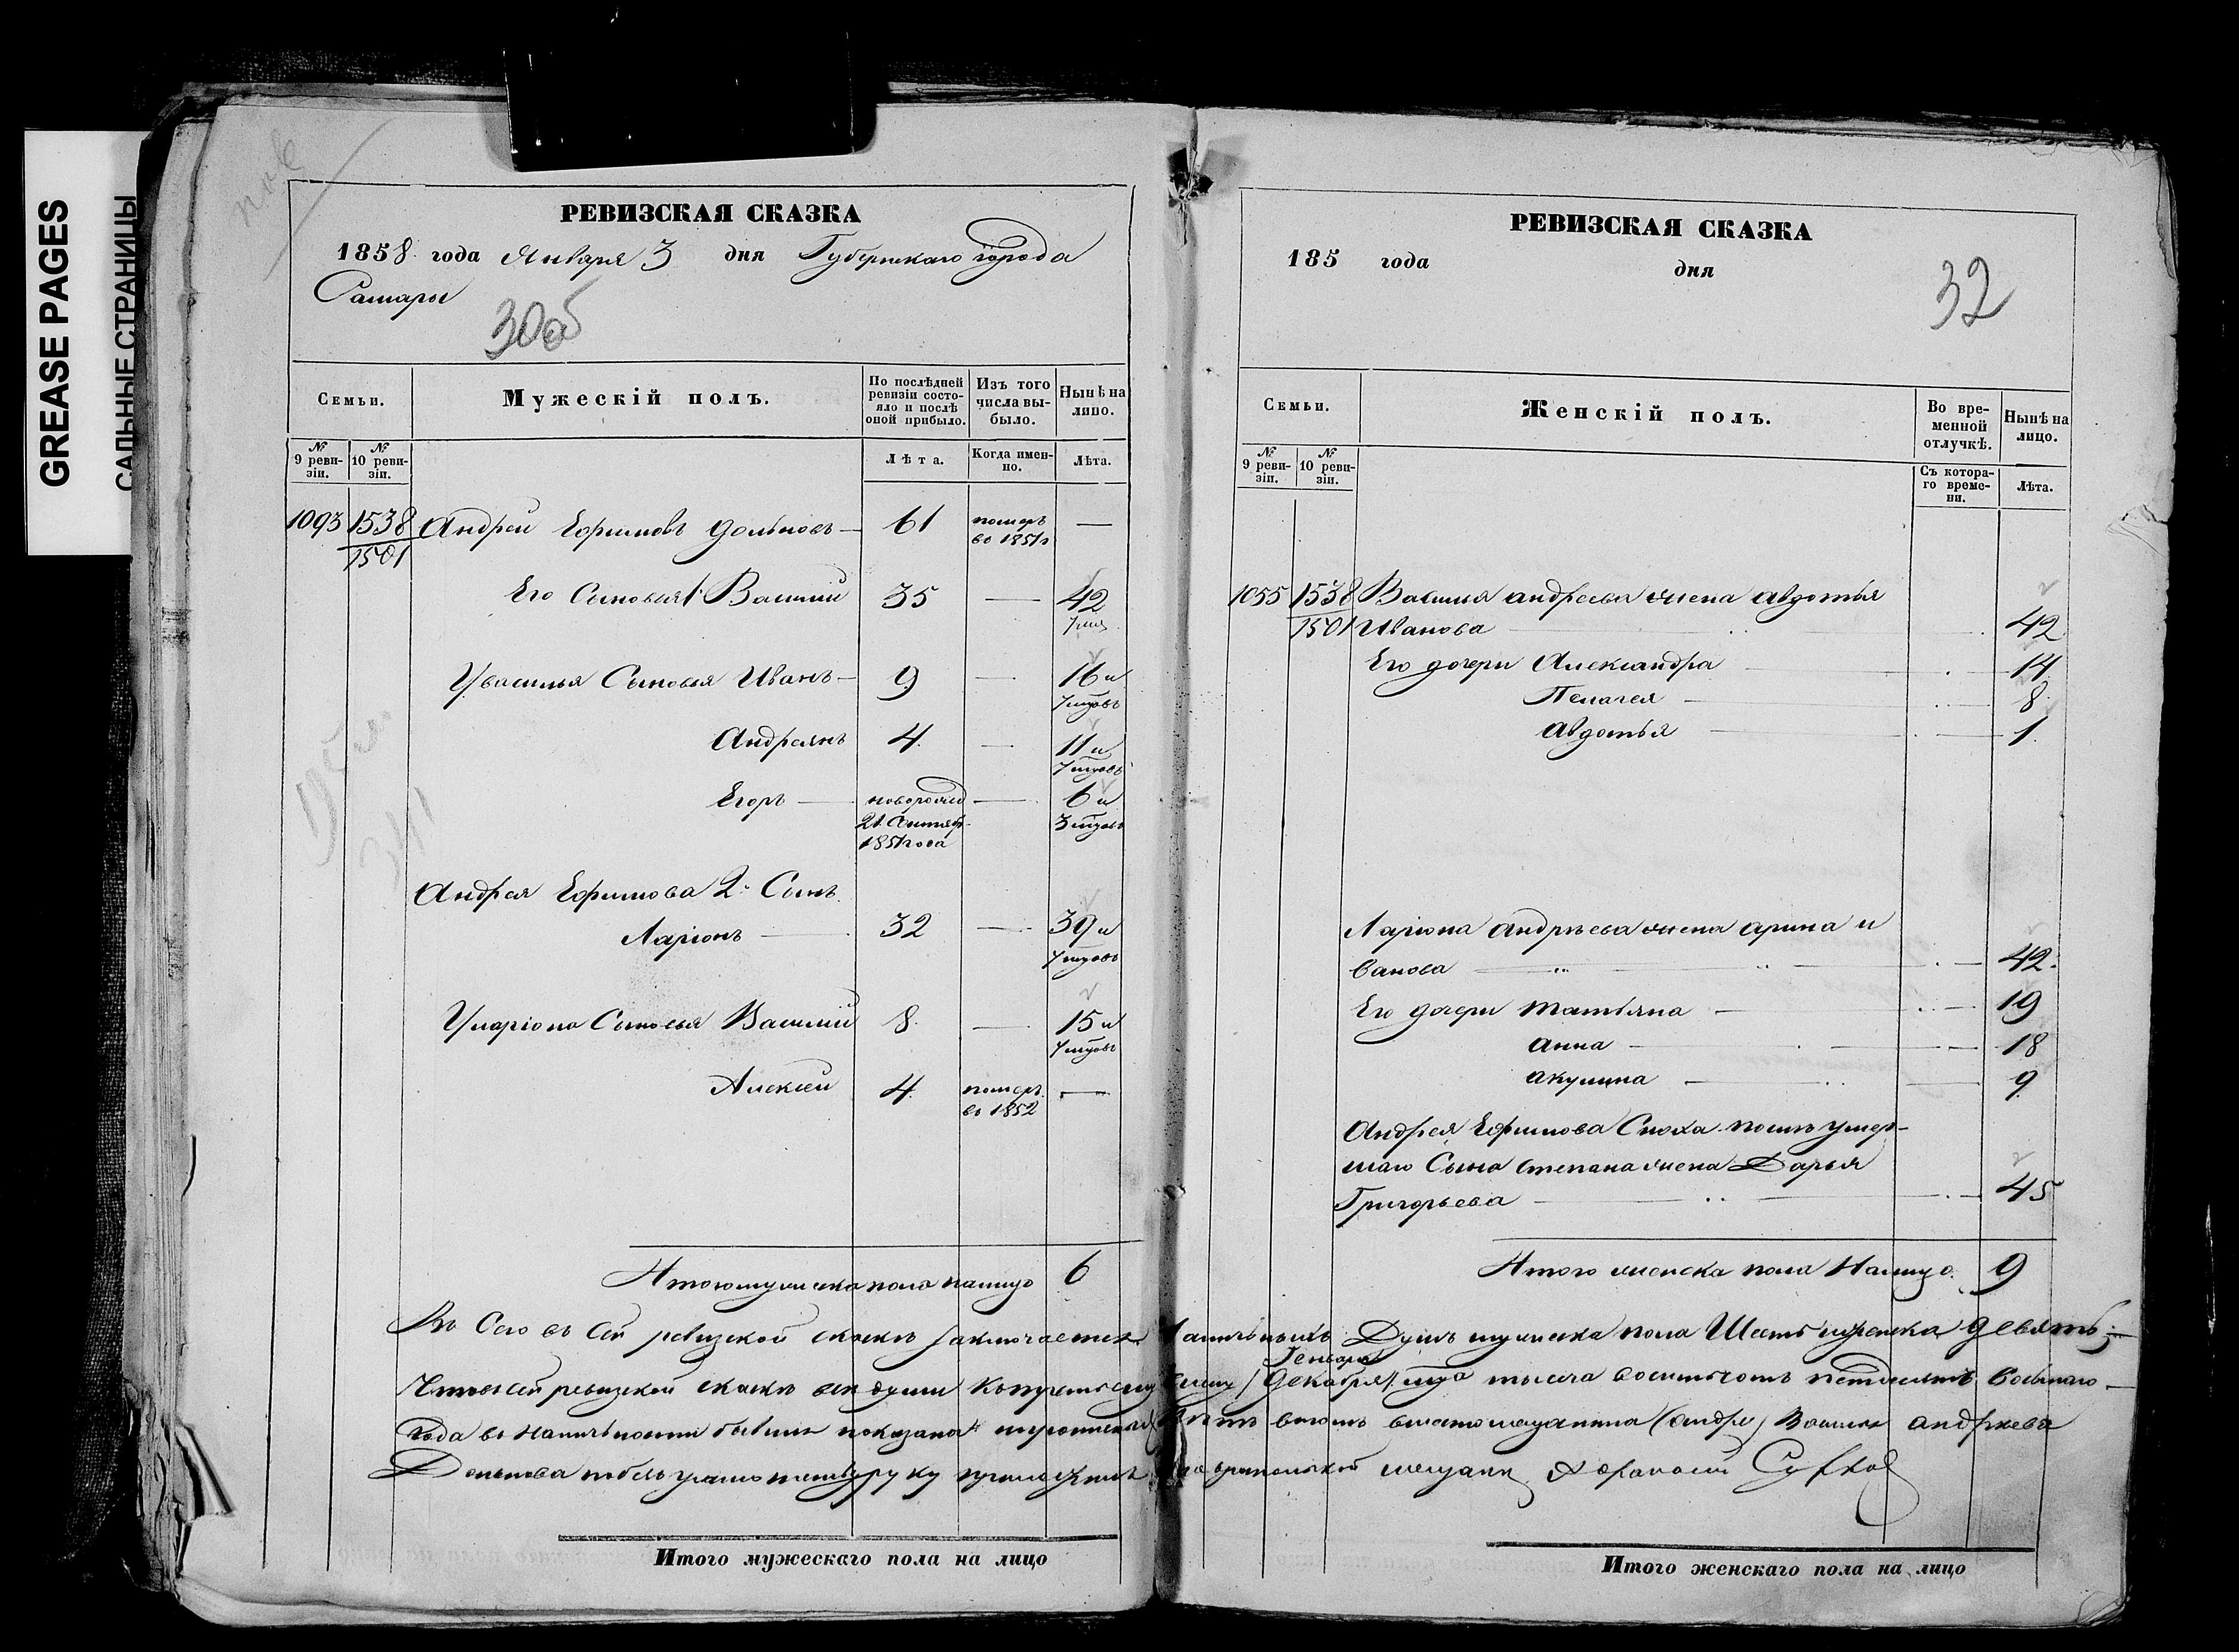 GREASE PAGES
САЛЬНЫЕ СТРАНИЦЫ
РЕВИЗСКАЯ СКАЗКА
1858 года Января 3 дня Губернскаго города
Самары
30об
Семьи.
Мужескій полъ.
По послѣдней ревизіи состояло и послѣ оной прибыло.
Изъ того числа выбыло.
Нынѣ на лицо.
№ 9 ревизіи.
№ 10 ревизіи.
Лѣта.
Когда именно.
Лѣта.
1093 1538 Андрей Ефимовъ 61 померъ —
1501 во 1851г
Его Сыновья 1. Василий 35 — 42
У василья Сыновья Иванъ — 9 — 16 и
7 мцовъ
Андреянъ 4 — 11 и
7 мцовъ
Егоръ — новорожд — 6 и
21 3 мцовъ
1851 года
Андрея Ефимова 2й Сынъ
Ларіонъ — 32 — 39 и
7 мцовъ
У ларіона Сыновья Василий 8 — 15 и
7 мцовъ
Алексей 4 померъ —
во 1852
Итого мужеска пола налицо 6
РЕВИЗСКАЯ СКАЗКА
185 года дня
32
Семьи.
Женскій полъ.
Во временной отлучкѣ.
Нынѣ на лицо.
№ 9 ревизіи.
№ 10 ревизіи.
Съ котораго времени.
Лѣта.
1055 1538 Василья андреева жена авдотья
1501 Иванова — 42
Его дочери Александра — 14
Пелагея — 8
авдотья — 1
Ларіона андрѣева жена арина и
ванова — 42
Его дочери татьяна — 19
анна — 18
акулина — 9
Андрея Ефимова Сноха послѣ умер-
шаго Сына степана жена Дарья
Григорьева — 45
Итого женска пола Налицо 9
Всего въ сей ревизской сказкѣ заключается наличныхъ Душъ мужеска пола Шесть женска девять;
Генваря
Что въ сей ревизской сказкѣ всѣ души к (Декабря) тысяча восемьсотъ петдесятъ восьмаго
года въ наличности бывшия показаны вместо мещанина (андре) Василья андреева
руку приложилъ мещанин Афанасий
Итого мужескаго пола на лицо
Итого женскаго пола на лицо